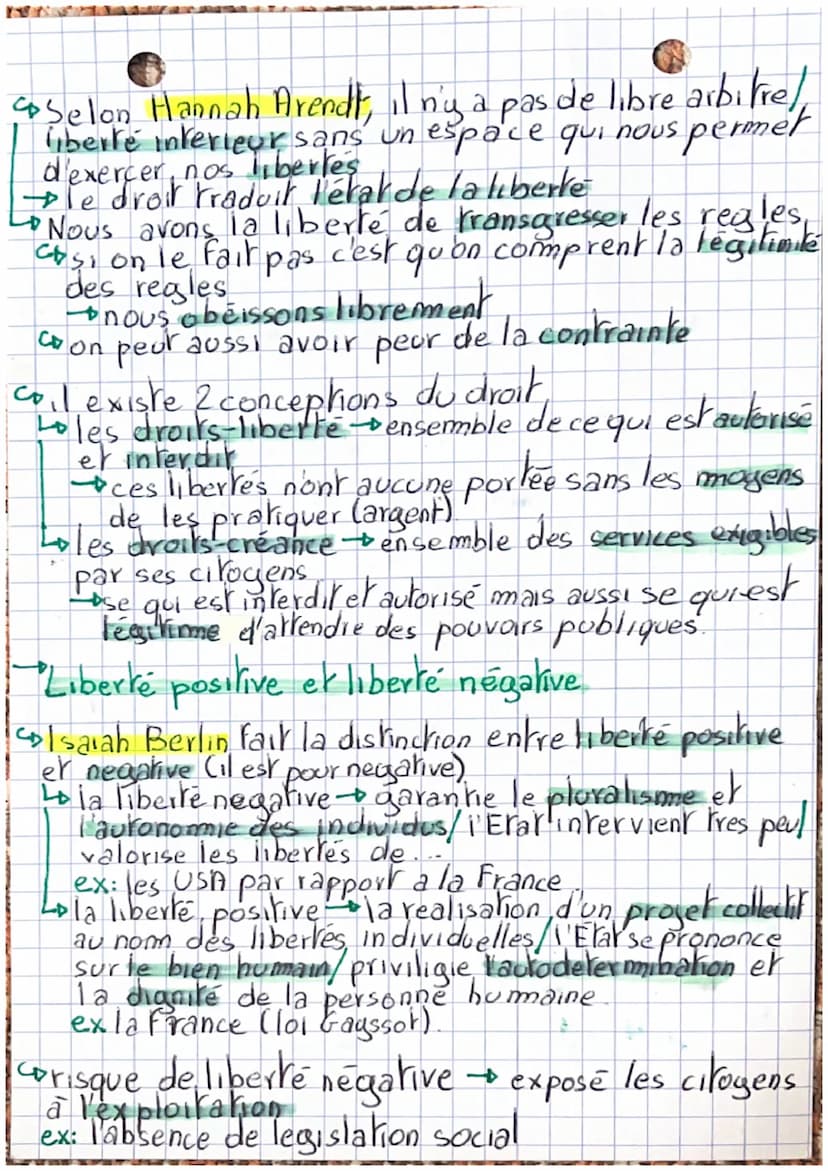 ↪ Selon Hannah Arendt, il n'y a pas de libre arbitre/
liberté interieur sans un espace qui nous permet
d'exercer nos libertés
→ le droit traduit l'état de la liberté
↳ Nous avons la liberté de transgresser les regles
↪ si on le fait pas c'est qu'on comprent la légitimité
des regles
→ nous obéissons librement
↪ on peut aussi avoir peur de la contrainte
↪ il existe 2 conceptions du droit
↳ les droits-liberté → ensemble de ce qui est autorisé
et interdit
→ ces libertés n'ont aucune portée sans les moyens
de les pratiquer (argent)
↳ les droits-créance → ensemble des services exigibles
par ses citoyens
→ se qui est interdit et autorisé mais aussi se qui est
légitime d'attendre des pouvoirs publiques.
→ Liberté positive et liberté négative
↪ Isaiah Berlin fait la distinction entre liberté positive
et negative (il est pour negative)
↳ la liberté negative → garantie le pluralisme et
l'autonomie des individus/ l'Etat intervient tres peu/
valorise les libertés de...
ex: les USA par rapport a la France
↳ la liberté positive → la realisation d'un projet collectif
au nom des libertés individuelles/ l'Etat se prononce
sur le bien humain/ priviligie l'autodetermination et
la dignité de la personne humaine
ex la France (loi Gayssot).
↪ risque de liberté négative → exposé les citoyens
à l'exploitation
ex: l'absence de legislation social